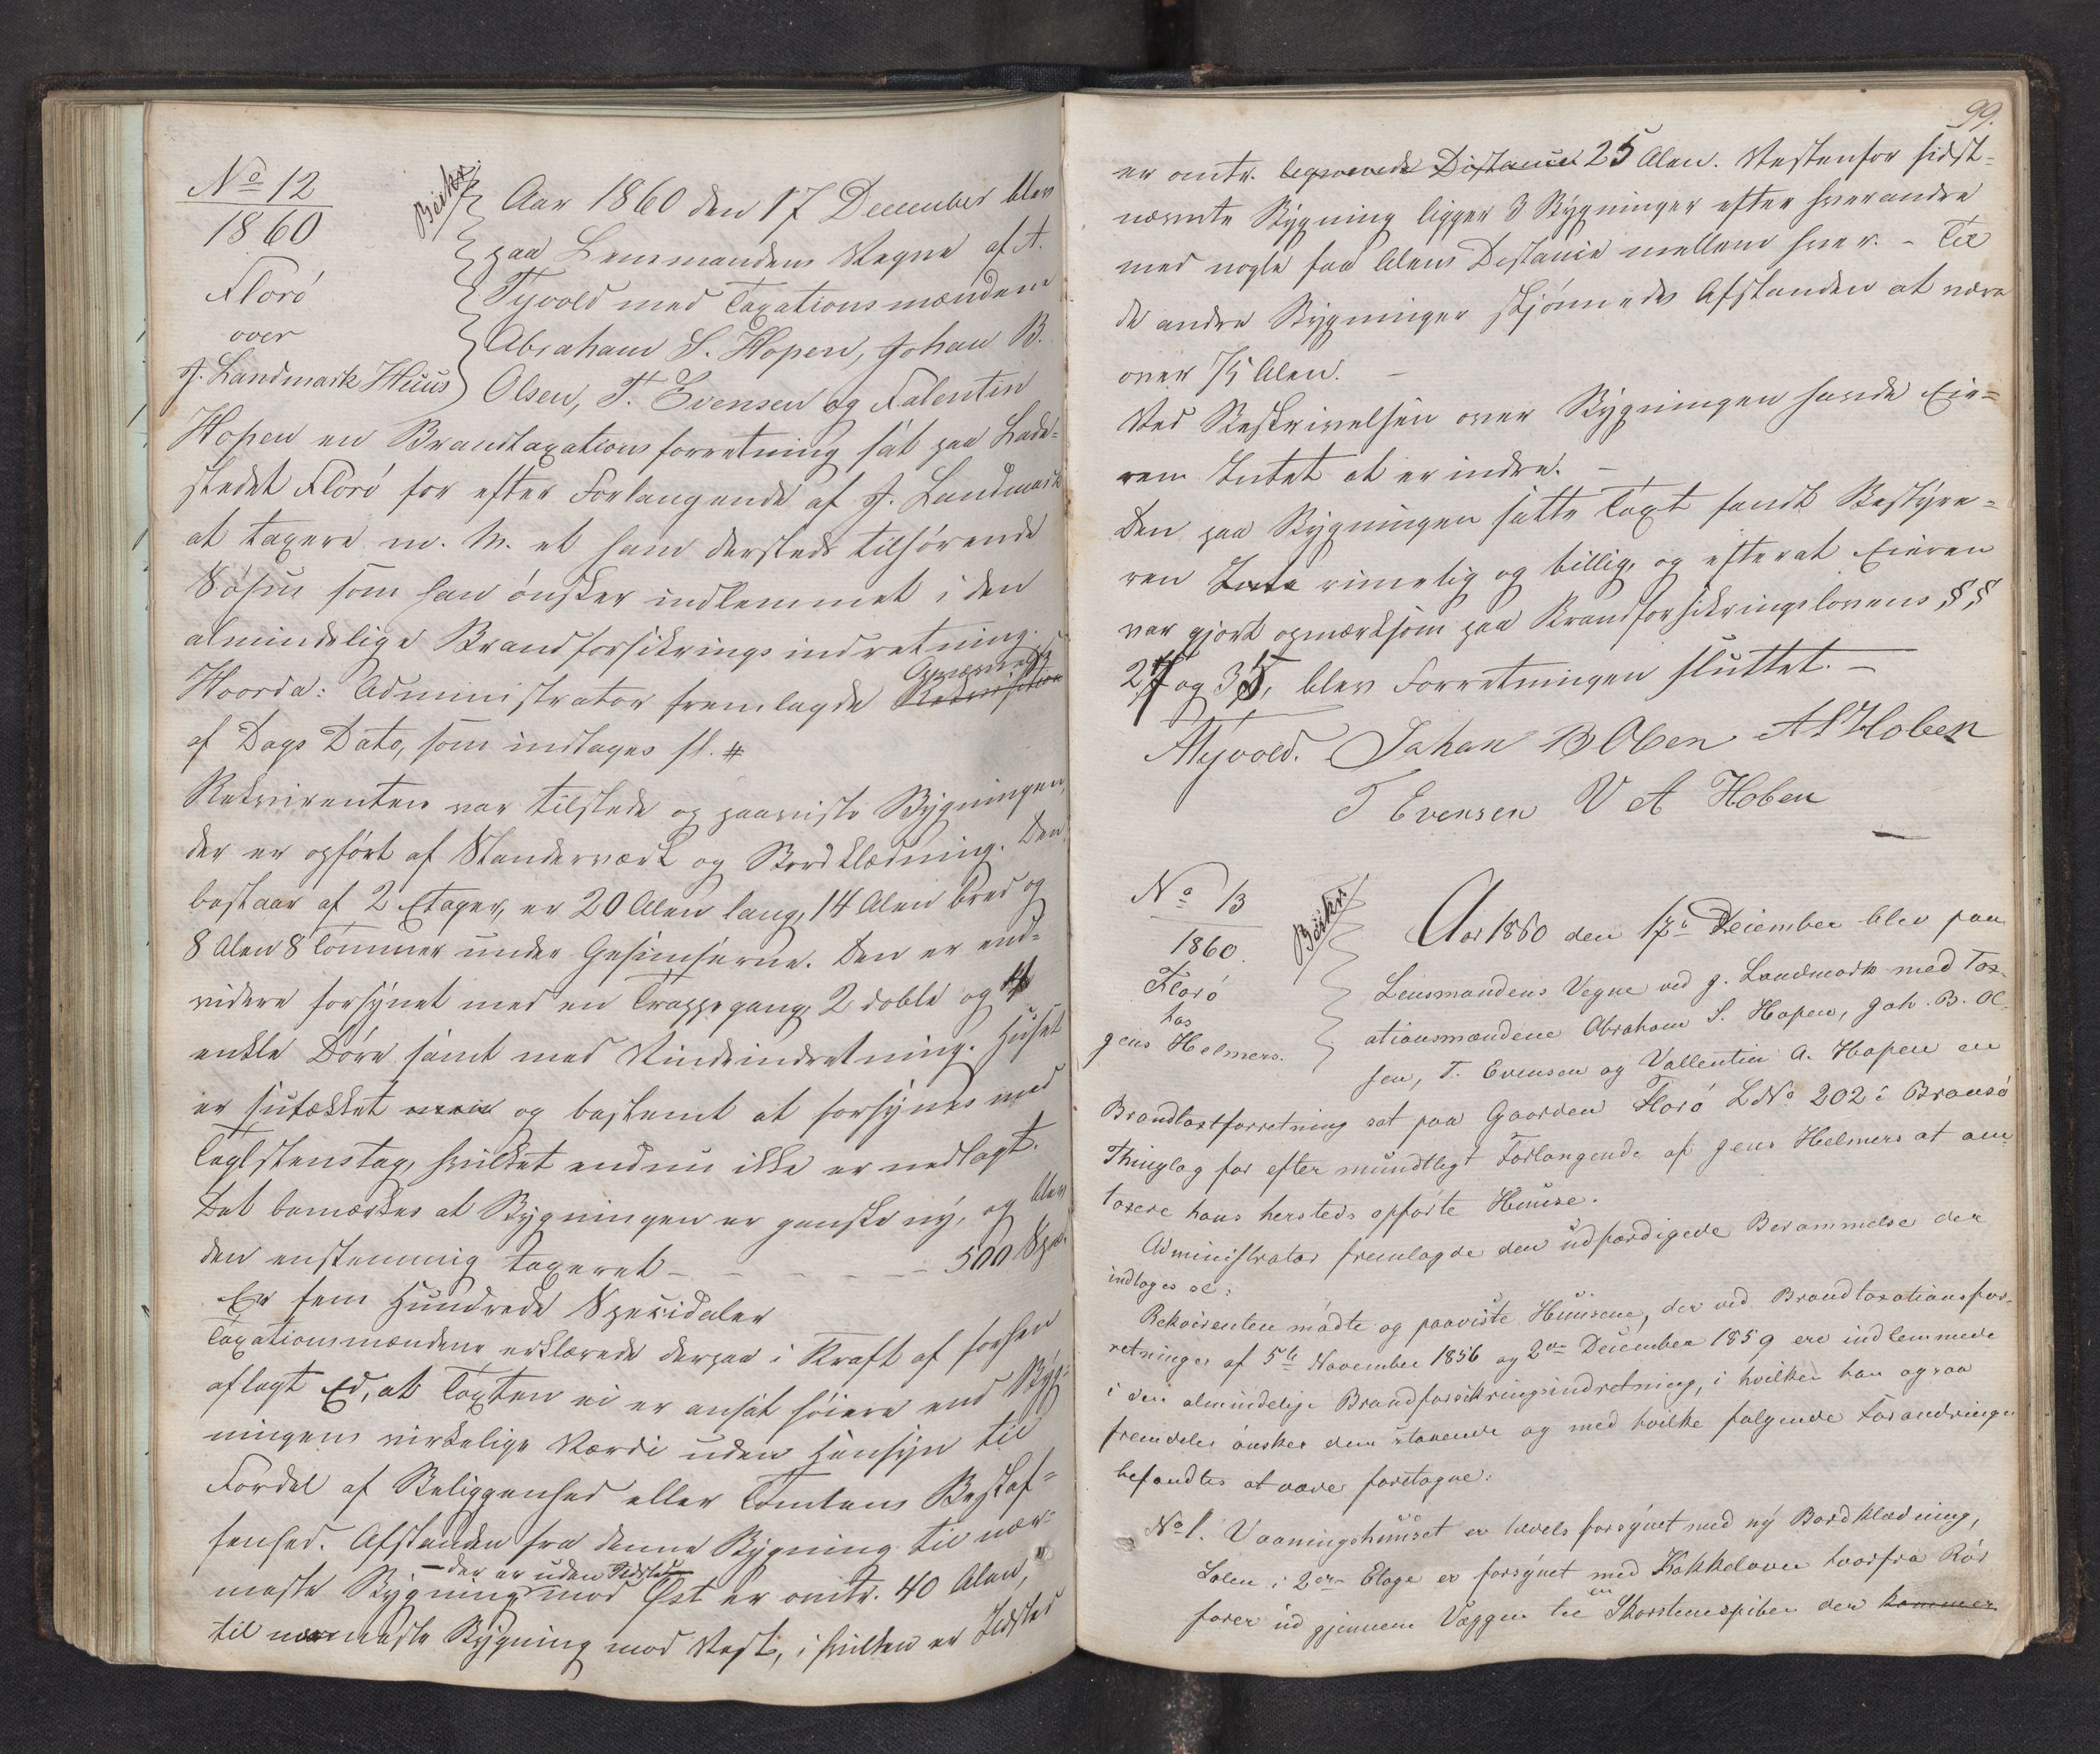 No 12
1860
Florö
over
J. Landmark Huus
Beskr.
Aar 1860 den 17 December blev
paa Lensmandens Vegne af A.
Tyvold med Taxationsmændene
Abraham S. Hopen, Johan B.
Olsen, T. Evensen og Falentin
Hopen en Brandtaxationsforretning sat paa Lade-
stedet Florö for efter Forlangende af J. Landmark
at taxere m. M. et ham dersteds tilhørende
som han ønsker indlemmet i den
almindelige Brandforsikringsindretning.
Hvorda: Administrator fremlagde Rekvisition
af Dags Dato, som indtages sl. #
Rekvirenten var tilstede og paaviste Bygningen,
der er opført af Standerværk og Bordklædning. Den
bestaar af 2 Etager, er 20 Alen lang, 14 Alen bred og
8 Alen 8 Tommer under Gesimserne. Den er end-
videre forsynet med en Trappegang, 2 doble og 4
enkle Døre samt med Vindeindretning. Huset
er og bestemt at forsynes med
Taglstenstag, hvilket endnu ikke er nedlagt.
Det bemærkes at Bygningen er ganske ny, og blev
den enstemmig taxeret - - - - - - 500 Spd.
Er fem Hundrede Speciedaler
Taxationsmændene erklærede derpaa i Kraft af forhen
aflagt Ed, at Taxten ei er ansat høiere end Byg-
ningens virkelige Værdi uden Hensyn til
Fordel af Beliggenhed eller Tomtens Beskaf-
fenhed. Afstanden fra denne Bygning til nær-
- der er uden Ildsted -
meste Bygning mod Øst er omtr. 40 Alen,
til nærmeste Bygning mod Vest, i hvilken er Ildsted
99.
er omtr. Distance 25 Alen. Vestenfor sidst-
nævnte Bygning ligger 3 Bygninger efter hverandre
med nogle faa Alens Distance mellem hver. - Til
de andre Bygninger skjønnedes Afstanden at være
over 75 Alen. -
Ved Beskrivelsen over Bygningen havde Eie-
ren Intet at erindre. -
Den paa Bygningen satte Taxt fandt Bestyre-
ren rimelig og billig, og efterat Eieren
var gjort opmærksom paa Brandforsikringslovens §§
27 og 35, blev Forretningen sluttet. -
ATyvold. Johan B Olsen A S Hoben
T Evensen V A Hoben
No 13
1860.
Florö
hos
Jens Helmers.
Beskr.
Aar 1860 den 17de December blev paa
Lensmandens Vegne ved J. Landmark med Tax-
ationsmændene Abraham S. Hopen, Joh. B. Ol-
sen, T. Evensen og Vallentin A. Hopen en
Brandtaxtforretning sat paa Gaarden Florö L No 202 i Bransö
Thinglag for efter mundtligt Forlangende af Jens Helmers at om-
taxere hans hersteds opførte Huuse.
Administrator fremlagde den udfærdigede Berammelse der
indtages sl:
Rekvirenten mødte og paaviste Huusene, der ved Brandtaxationsfor-
retninger af 5te November 1856 og 2den December 1859 ere indlemmede
i den almindelige Brandforsikringsindretning, i hvilken han ogsaa
fremdeles ønsker dem staaende og med hvilke følgende Forandringer
befandtes at være foretagne:
No 1. Vaaningshuuset er forsynet med ny Bordklædning,
Salen i 2den Etage er forsynet med Kakkelovn hvorfra Rör
fører ud gjennem Væggen til en Skorstenspibe der kommer